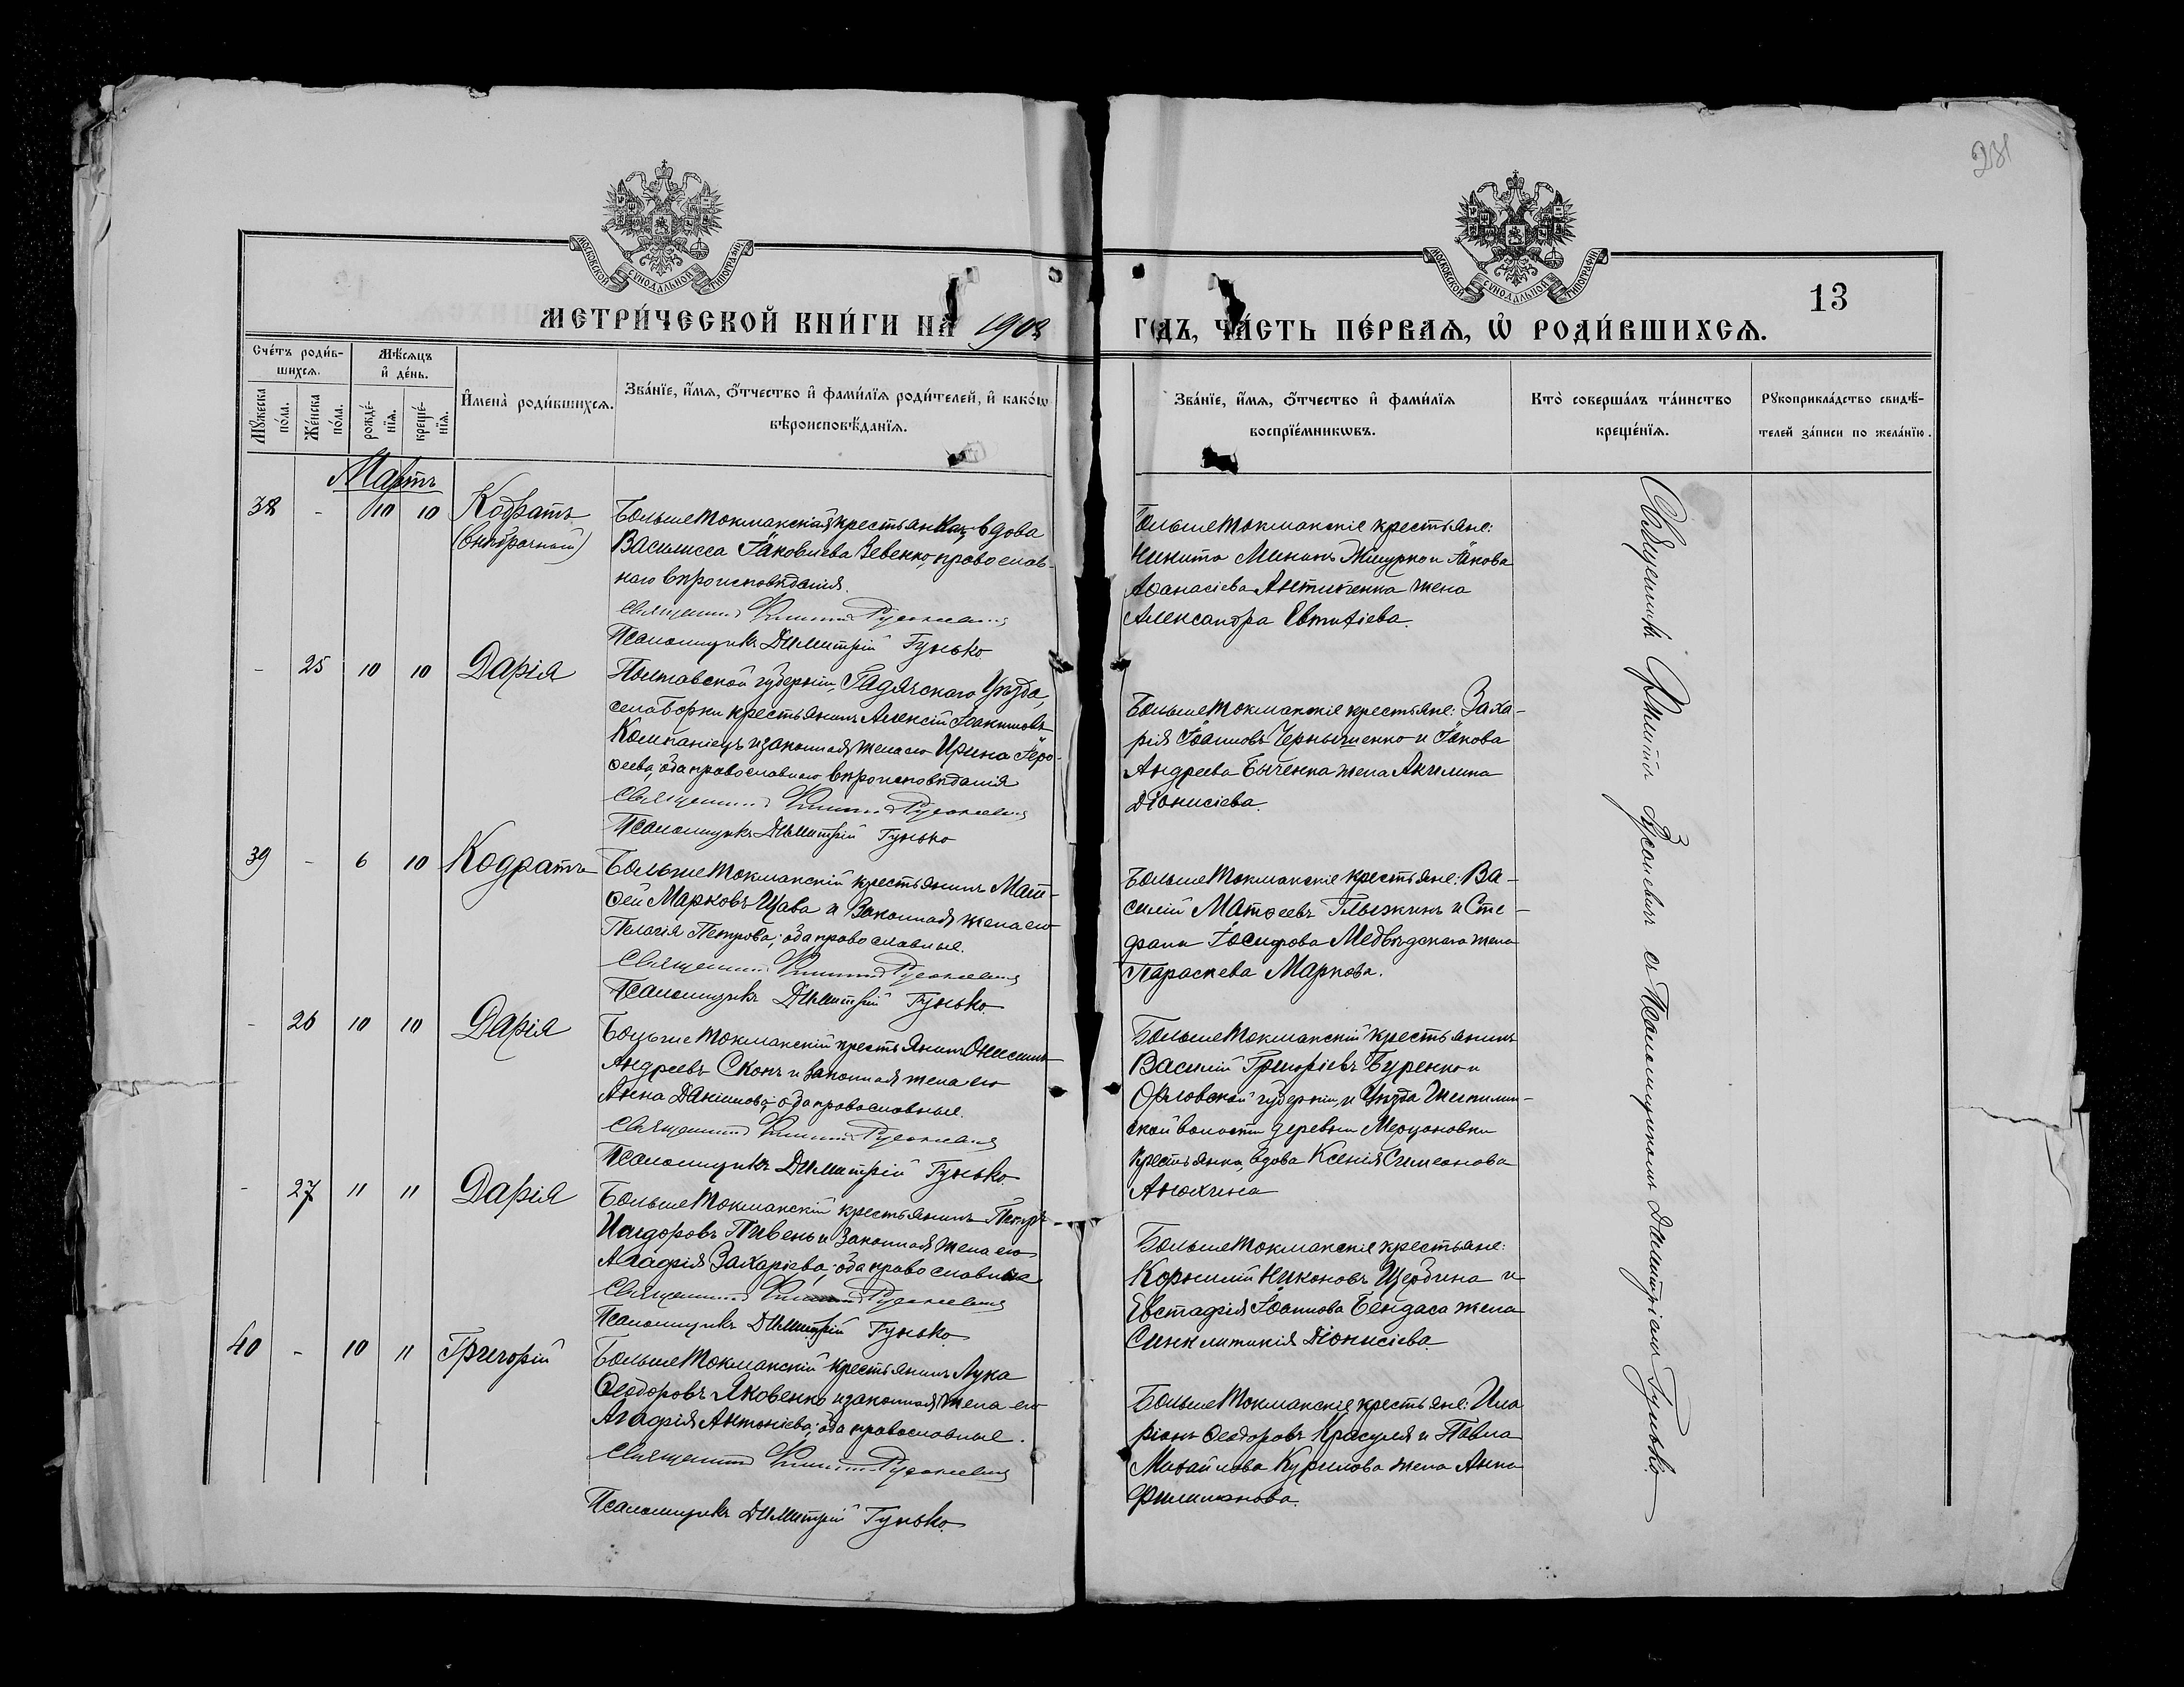 231
МОСКОВСКОЙ СѴНОДАЛЬНОЙ ТИПОГРАФІИ
МОСКОВСКОЙ СѴНОДАЛЬНОЙ ТИПОГРАФІИ
13
МЕТРИ́ЧЕСКОЙ КНИ́ГИ НА 1908
ГОДЪ, ЧА́СТЬ ПЕ́РВАѦ, Ѡ҆ РОДИ́ВШИХСѦ.
Сче́тъ роди́в-
шихсѧ.
Мꙋжеска по́ла.
Же́нска по́ла.
Мѣ́сѧцъ
и҆ де́нь.
рожде́-
нїѧ.
креще́-
нїѧ.
И҆мена̀ роди́вшихсѧ.
Зва́нїе, и҆́мѧ, ѻ҆́тчество и҆ фами́лїѧ роди́телей, и҆ како́гѡ
вѣроисповѣ́данїѧ.
Зва́нїе, и҆́мѧ, ѻ҆́тчество и҆ фами́лїѧ
воспрїе́мникѡвъ.
Кто̀ соверша́лъ та́инство
креще́нїѧ.
Рꙋкоприкла́дство свидѣ́-
телей за́писи по жела́нїю.
Мартъ
38 - 10 10 Кодратъ
(внѣбрачный)
Больше Токмакская крестьянка, вдова
Василисса Іаковлева Зевенко, православ-
наго вѣроисповѣданія.
Священникъ
Псаломщикъ Димитрій Гунько.
Больше Токмакскіе крестьяне:
Никита Мининъ и Іакова
Аѳанасіева Антипенка жена
Александра Евтихіева.
- 25 10 10 Дарія
Полтавской губерніи, Гадячскаго Уѣзда,
села Борки крестьянинъ Алексій Іоакимовъ
Компаніецъ и законная жена его Ирина Іеро-
ѳеева, оба православнаго вѣроисповѣданія
Священникъ
Псаломщикъ Димитрій Гунько
Больше Токмакскіе крестьяне: Заха-
рія Іоанновъ Чернышенко и Іакова
Андреева Быченка жена Акилина
Діонисіева.
39 - 6 10 Кодратъ
Больше Токмакскій крестьянинъ Мат-
ѳей Марковъ Щава и законная жена его
Пелагія Петрова; оба православные.
Священникъ
Псаломщикъ Димитрій Гунько.
Больше Токмакскіе крестьяне: Ва-
силій Матѳеевъ и Сте-
фана Іосифова Медвѣдскаго жена
Параскева Маркова.
- 26 10 10 Дарія
Больше Токмакскій крестьянинъ Онисимъ
Андреевъ Скокъ и законная жена его
Анна Даніилова; оба православные.
Священникъ
Псаломщикъ Димитрій Гунько.
Больше Токмакскій крестьянинъ
Василій Григоріевъ Буренко и
Орловской губерніи, и Уѣзда
ской волости деревни
крестьянка, вдова Ксенія Симеонова
Анохина
- 27 11 11 Дарія
Больше Токмакскій крестьянинъ Петръ
Исидоровъ Пивень и законная жена его
Агафія Захаріева; оба православные
Священникъ
Псаломщикъ Димитрій Гунько
Больше Токмакскіе крестьяне:
Корнилій Никоновъ Щербина и
Евстафія Іоаннова Бендаса жена
Синклитикія Діонисіева.
40 - 10 11 Григорій
Больше Токмакскій крестьянинъ Лука
Ѳеодоровъ Яковенко и законная жена его
Агафія Антоніева; оба православные.
Священникъ
Псаломщикъ Димитрій Гунько.
Больше Токмакскіе крестьяне: Ила
ріонъ Ѳеодоровъ Красуля и Павла
Михайлова Курилова жена Анна
Филимонова.
Священникъ съ Псаломщикомъ Димитріемъ Гунько.